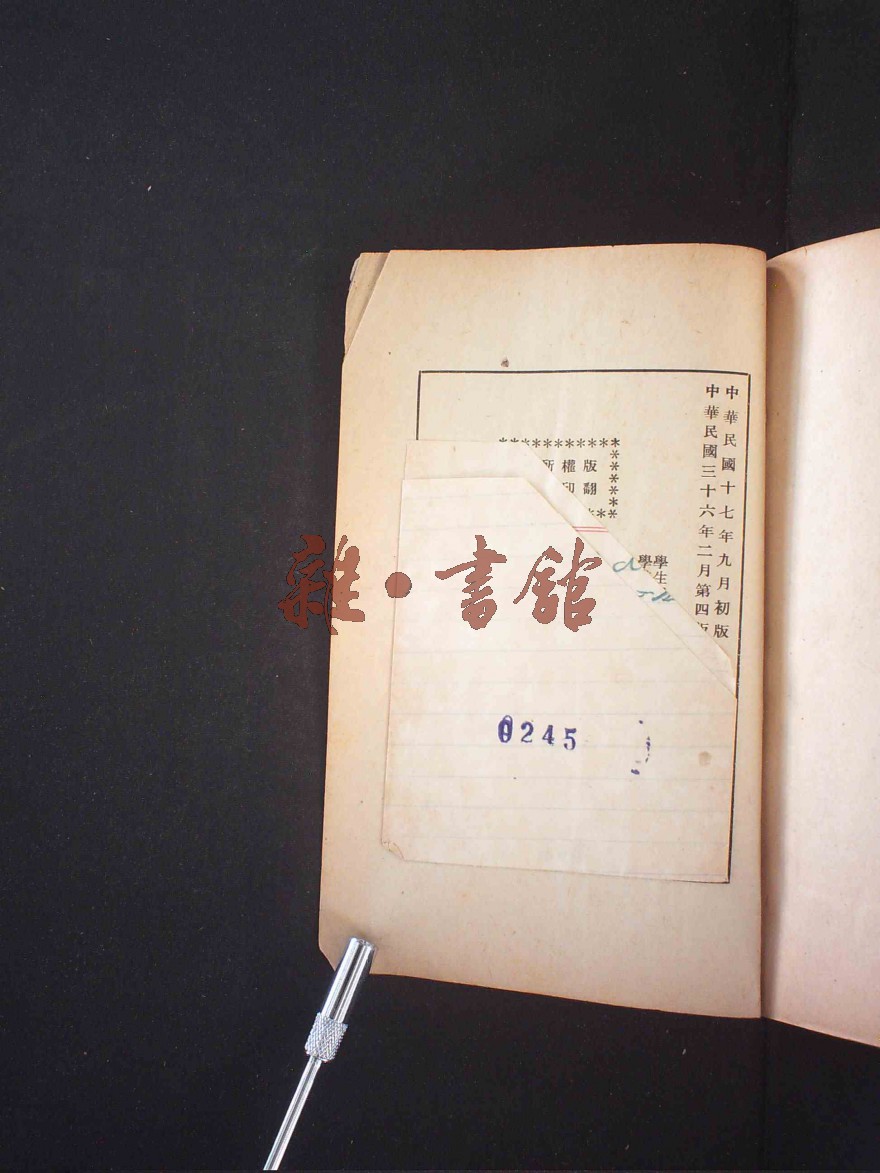 中華民國十七年九月初版
中華民國三十六年二月第四版
學生
學
版權所
翻印
0245
雜·書館